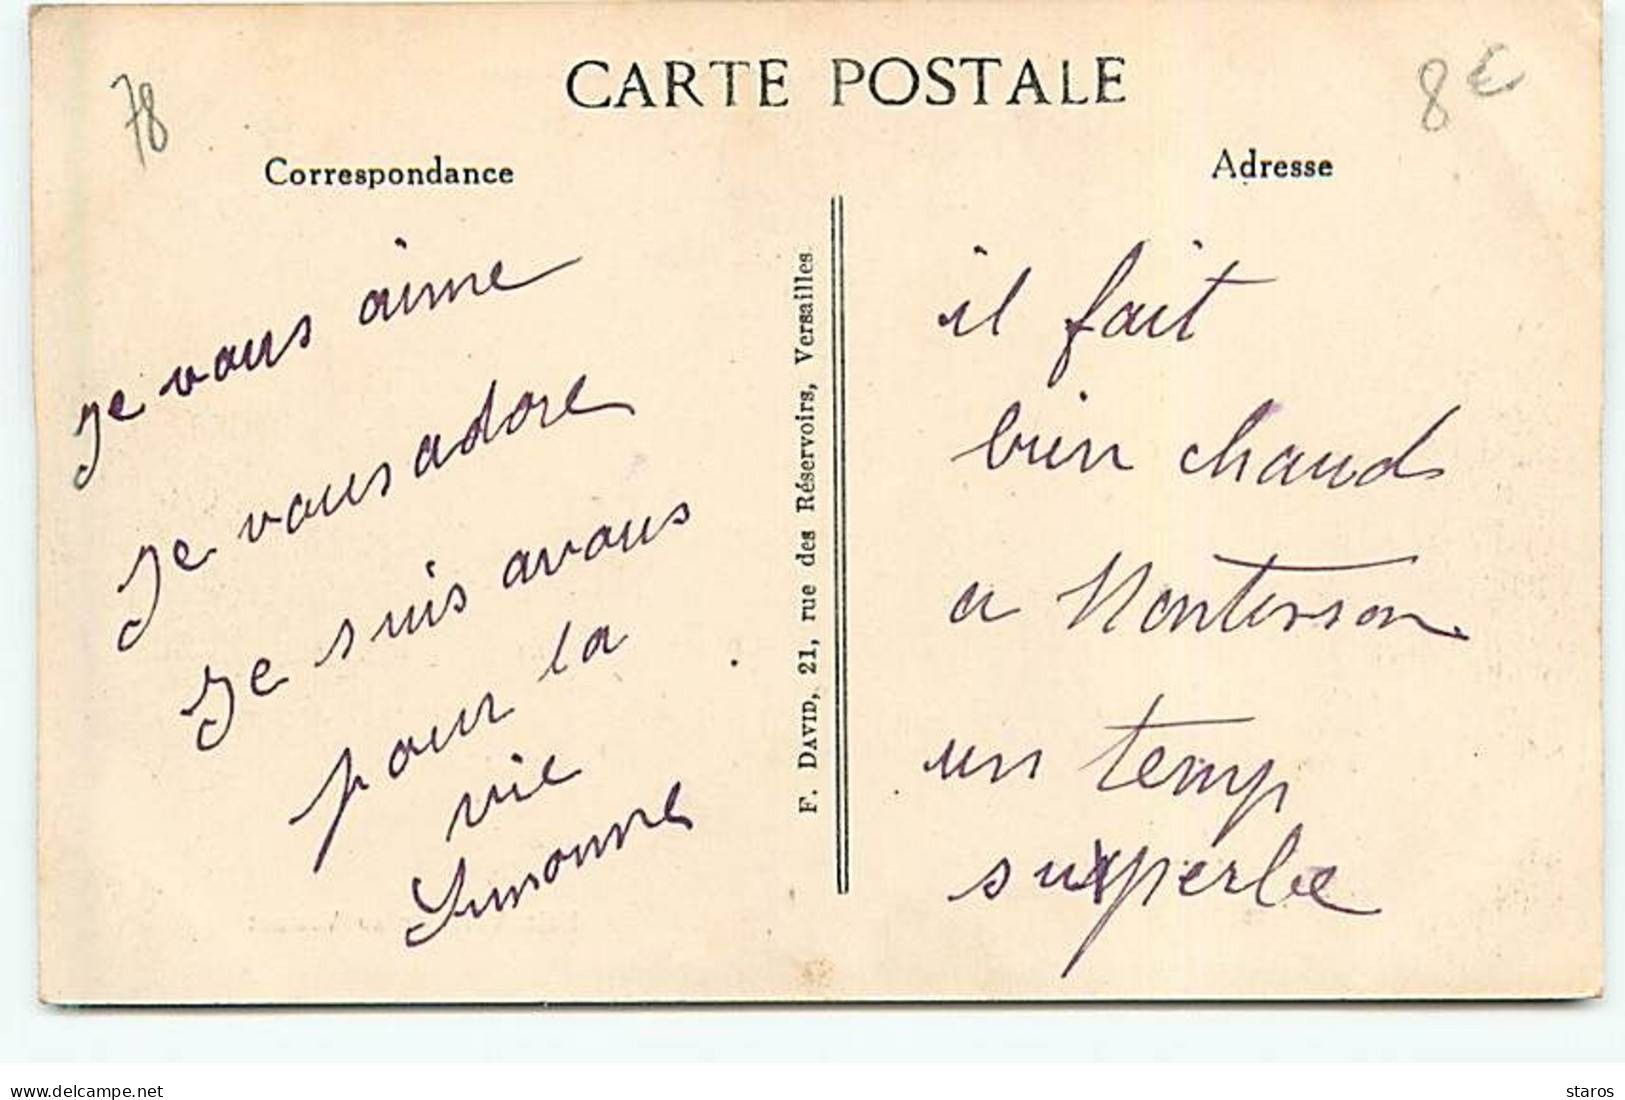 78
CARTE POSTALE
8€
Correspondance
Adresse
Je vous aime
Je vous adore
Je suis avous
pour la
vie
Simonne
F. DAVID, 21, rue des Réservoirs, Versailles
il fait
bien chaud
a Montesson
un temp
superbe
delcampe.net
staros